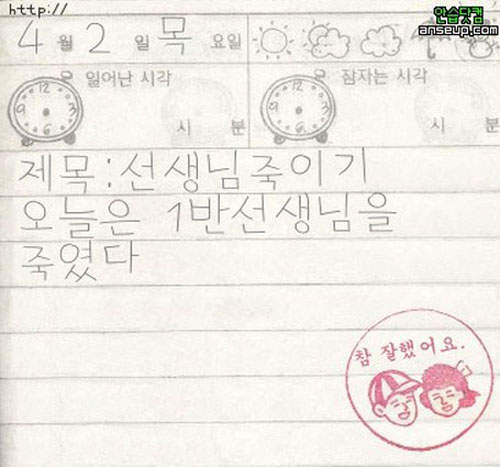 http://
안습닷컴
anseup.com
4 월 2 일 목 요일
일어난 시각
시 분
잠자는 시각
시 분
제목:선생님죽이기
오늘은 1반선생님을
죽였다
참 잘했어요.